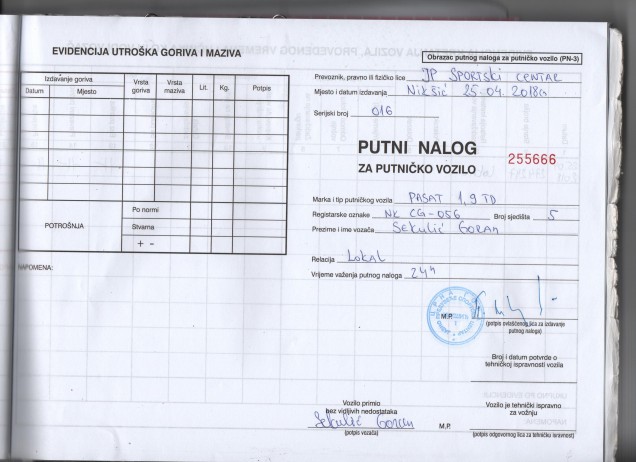 EVIDENCIJA UTROŠKA GORIVA I MAZIVA
Izdavanje goriva
Datum Mjesto Vrsta goriva Vrsta maziva Lit. Kg. Potpis
POTROŠNJA
Po normi
Stvarna
+ -
NAPOMENA:
Obrazac putnog naloga za putničko vozilo (PN-3)
Prevoznik, pravno ili fizičko lice JP SPORTSKI CENTAR
Mjesto i datum izdavanja NIKŠIĆ 25.04.2018G
Serijski broj 016
PUTNI NALOG
ZA PUTNIČKO VOZILO
255666
Marka i tip putničkog vozila PASAT 1,9 TD
Registarske oznake NK CG-056 Broj sjedišta 5
Prezime i ime vozača SEKULIĆ GORAN
Relacija LOKAL
Vrijeme važenja putnog naloga 24h
M.P.
(potpis ovlašćenog lica za izdavanje
putnog naloga)
Broj i datum potvrde o
tehničkoj ispravnosti vozila
Vozilo primio
bez vidljivih nedostataka
Sekulić Goran
(potpis vozača)
M.P.
Vozilo je tehnički ispravno
za vožnju
(potpis odgovornog lica za tehničku ispravnost)